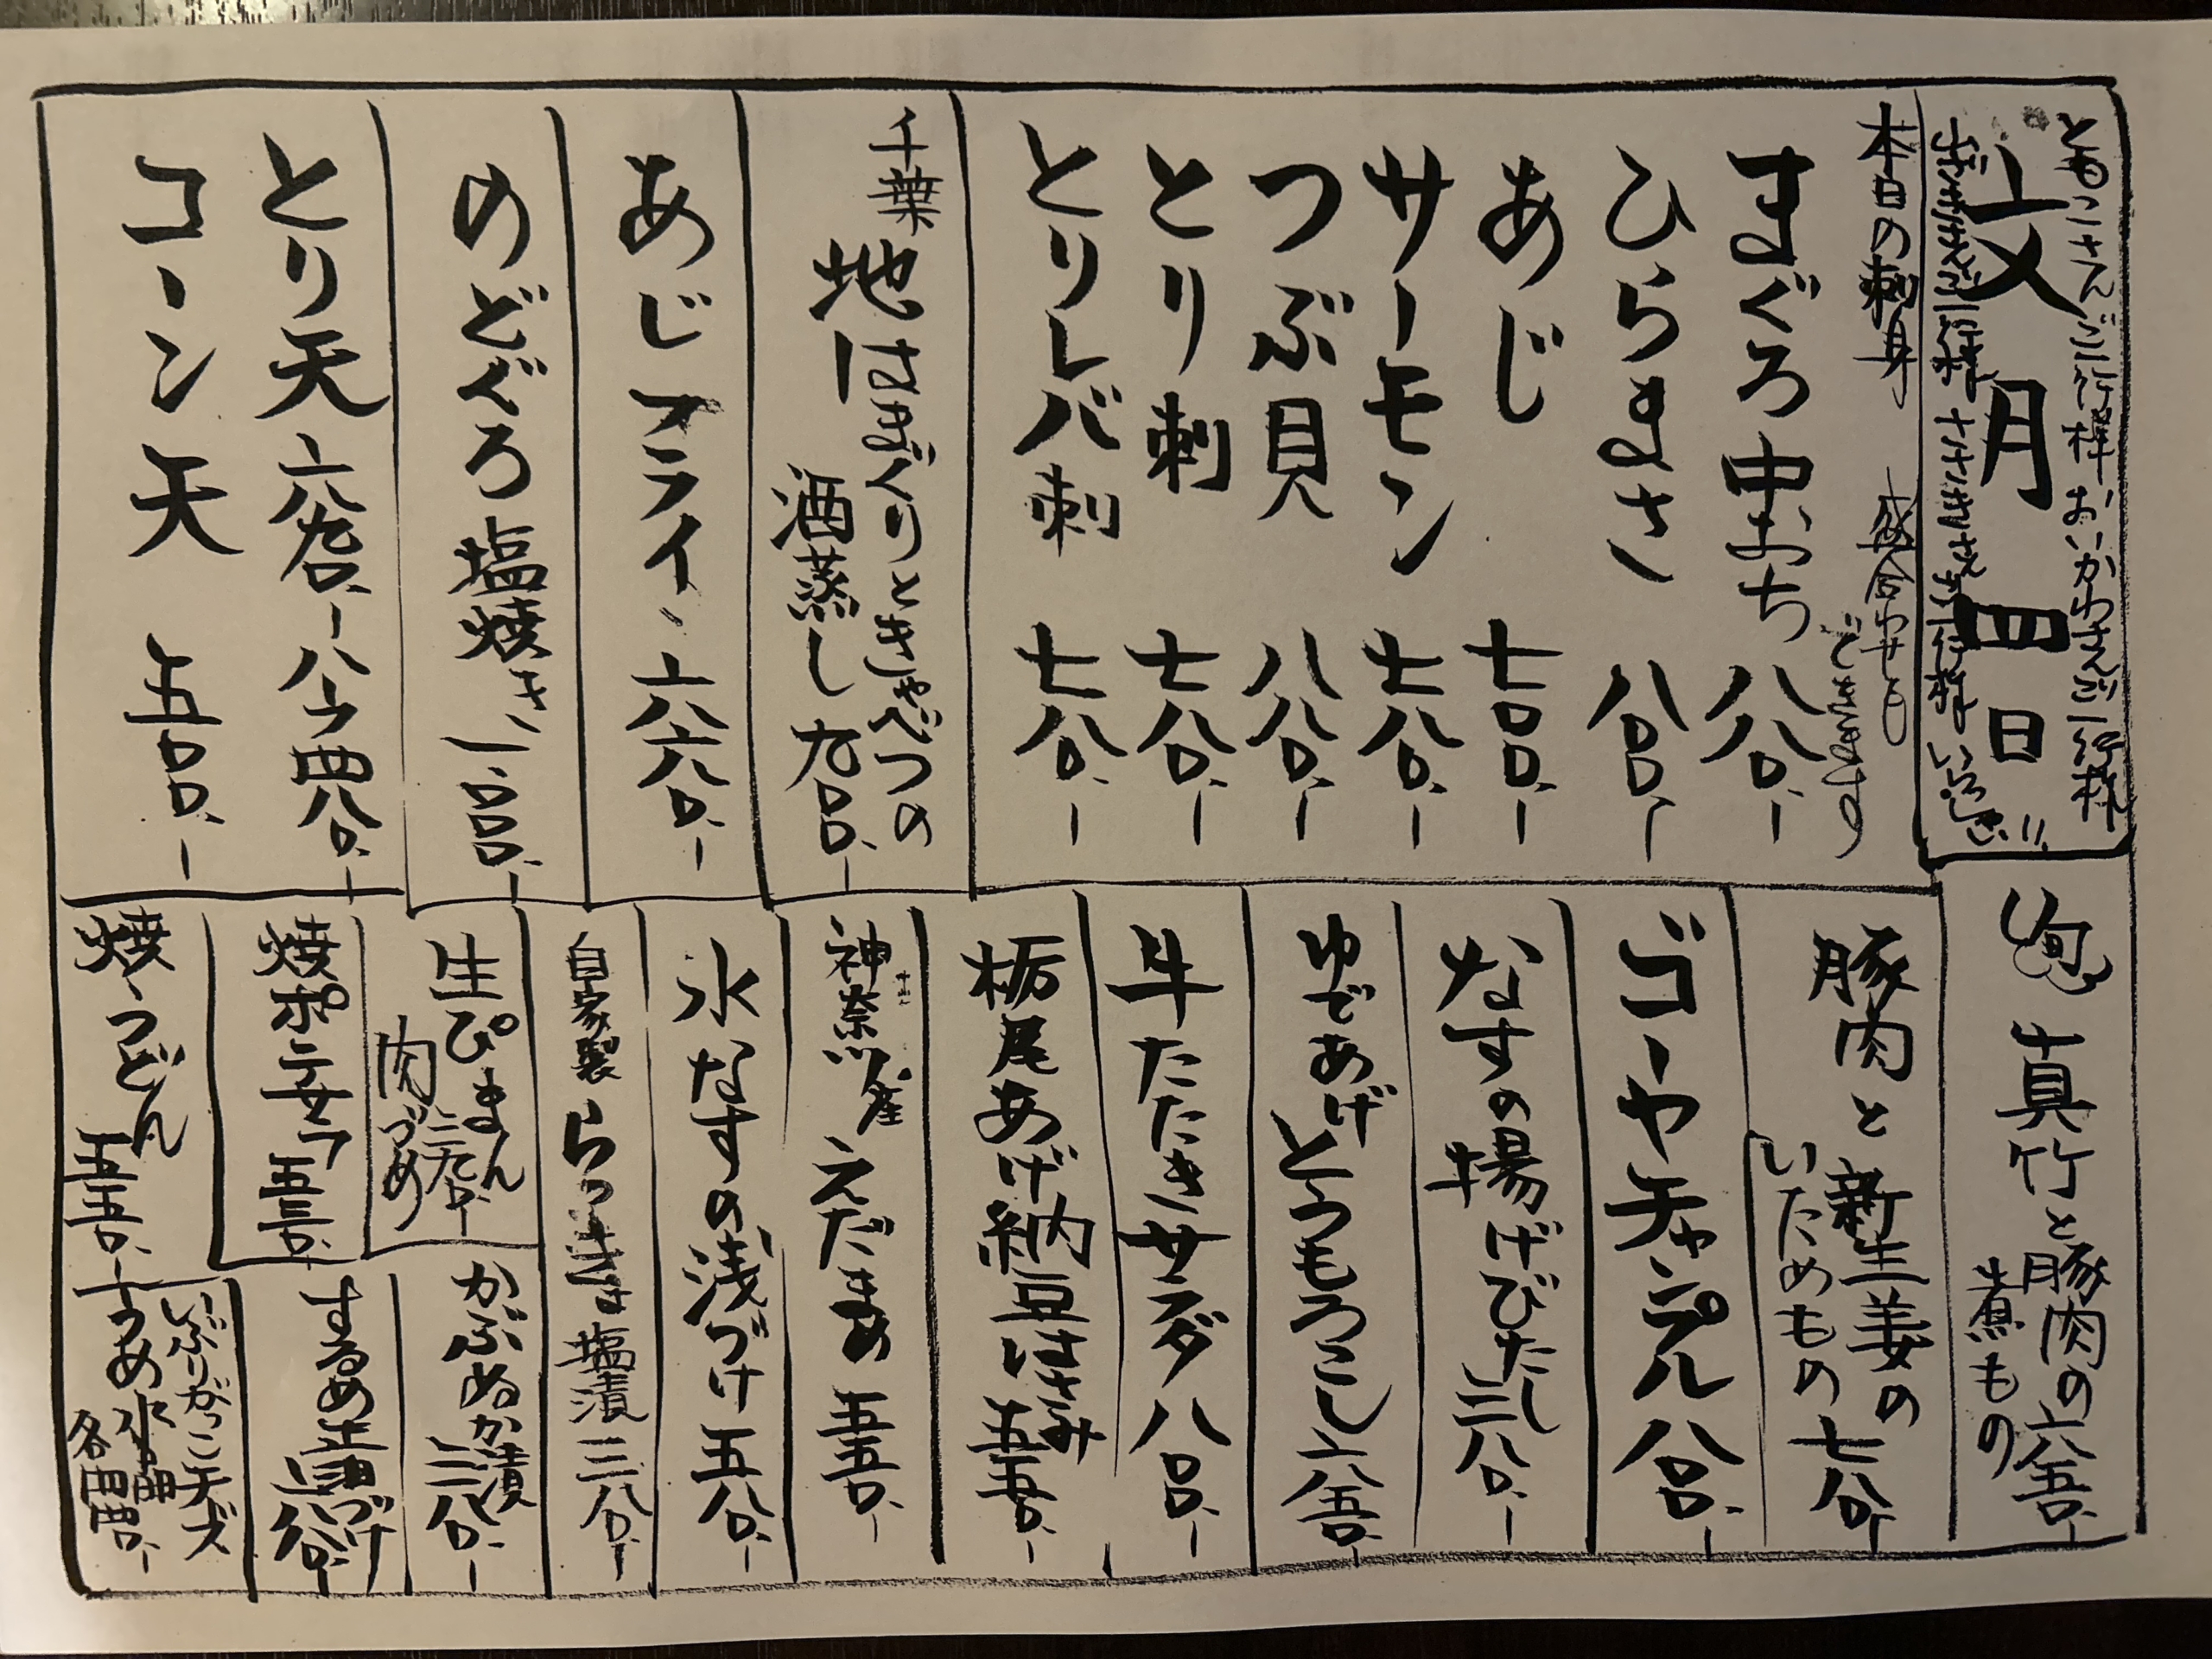 ともこさんご一行様 おいかわさんご一行様
文月 四日
さきさんご一行様 ささきさんご一行様 いらっしゃい!!
本日の刺身 盛合わせも
できます
まぐろ中おち 八八〇、ー
ひらまさ 八八〇、ー
あじ 七八〇、ー
サーモン 七八〇、ー
つぶ貝 八八〇、ー
とり刺 七八〇、ー
とりレバ刺 七八〇、ー
千葉 地はまぐりときゃべつの
酒蒸し 九八〇、ー
あじフライ 六八〇、ー
のどぐろ塩焼き
とり天
コーン天 五八〇、ー
旬 真竹と豚肉の
煮もの 六五〇、ー
豚肉と新生姜の
いためもの 七八〇、ー
ゴーヤチャンプル 八八〇、ー
なすの揚げびたし 三八〇、ー
ゆであげとうもろこし 六五〇、ー
牛たたきサラダ 八八〇、ー
栃尾あげ納豆はさみ 五五〇、ー
神奈川産 えだまめ 五五〇、ー
水なすの浅づけ 五八〇、ー
自家製 らっきょ塩漬 三八〇、ー
生ぴーまん
肉づめ
かぶぬか漬 三八〇、ー
焼ポテサラ 五五〇、ー
するめ醤油づけ
焼うどん 五五〇、ー
いぶりがっこチーズ
うめ水晶
各四四〇、ー